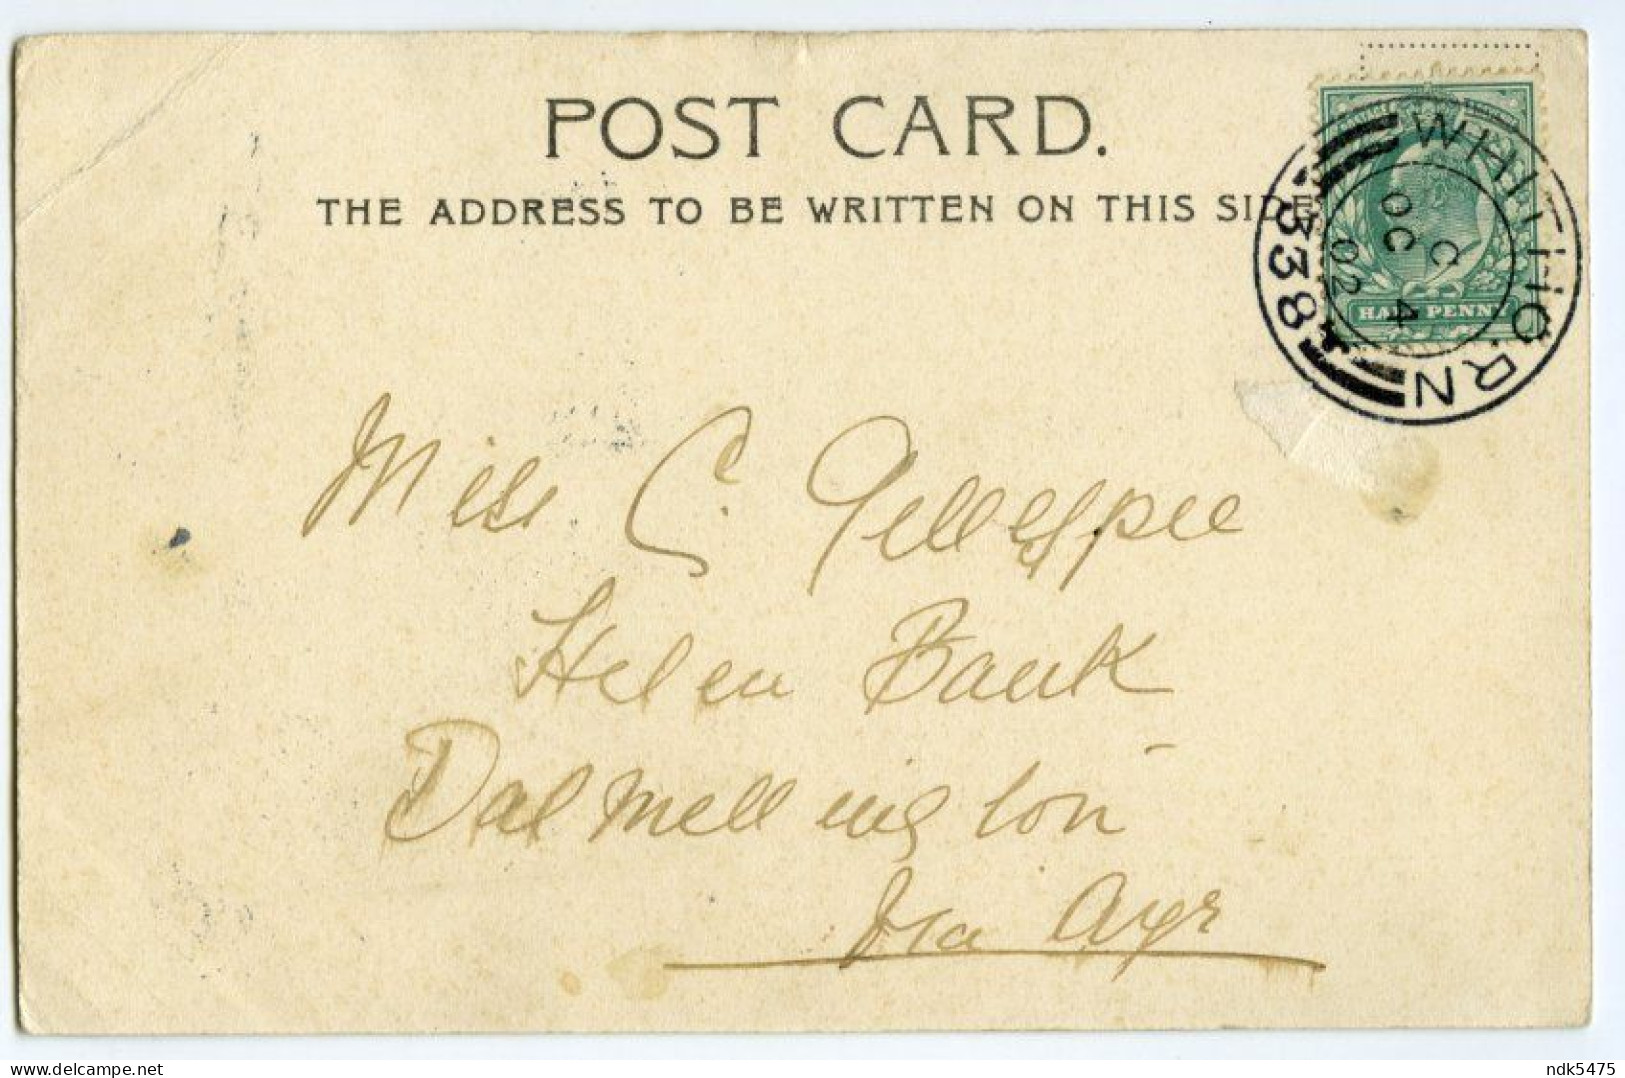 POST CARD.
THE ADDRESS TO BE WRITTEN ON THIS SIDE
WHITHORN
C
OC 4
02
338
HALF PENNY
Miss C. Gillespie
Helen Bank
Dalmellington
Via Ayr
delcampe.net
ndk5475